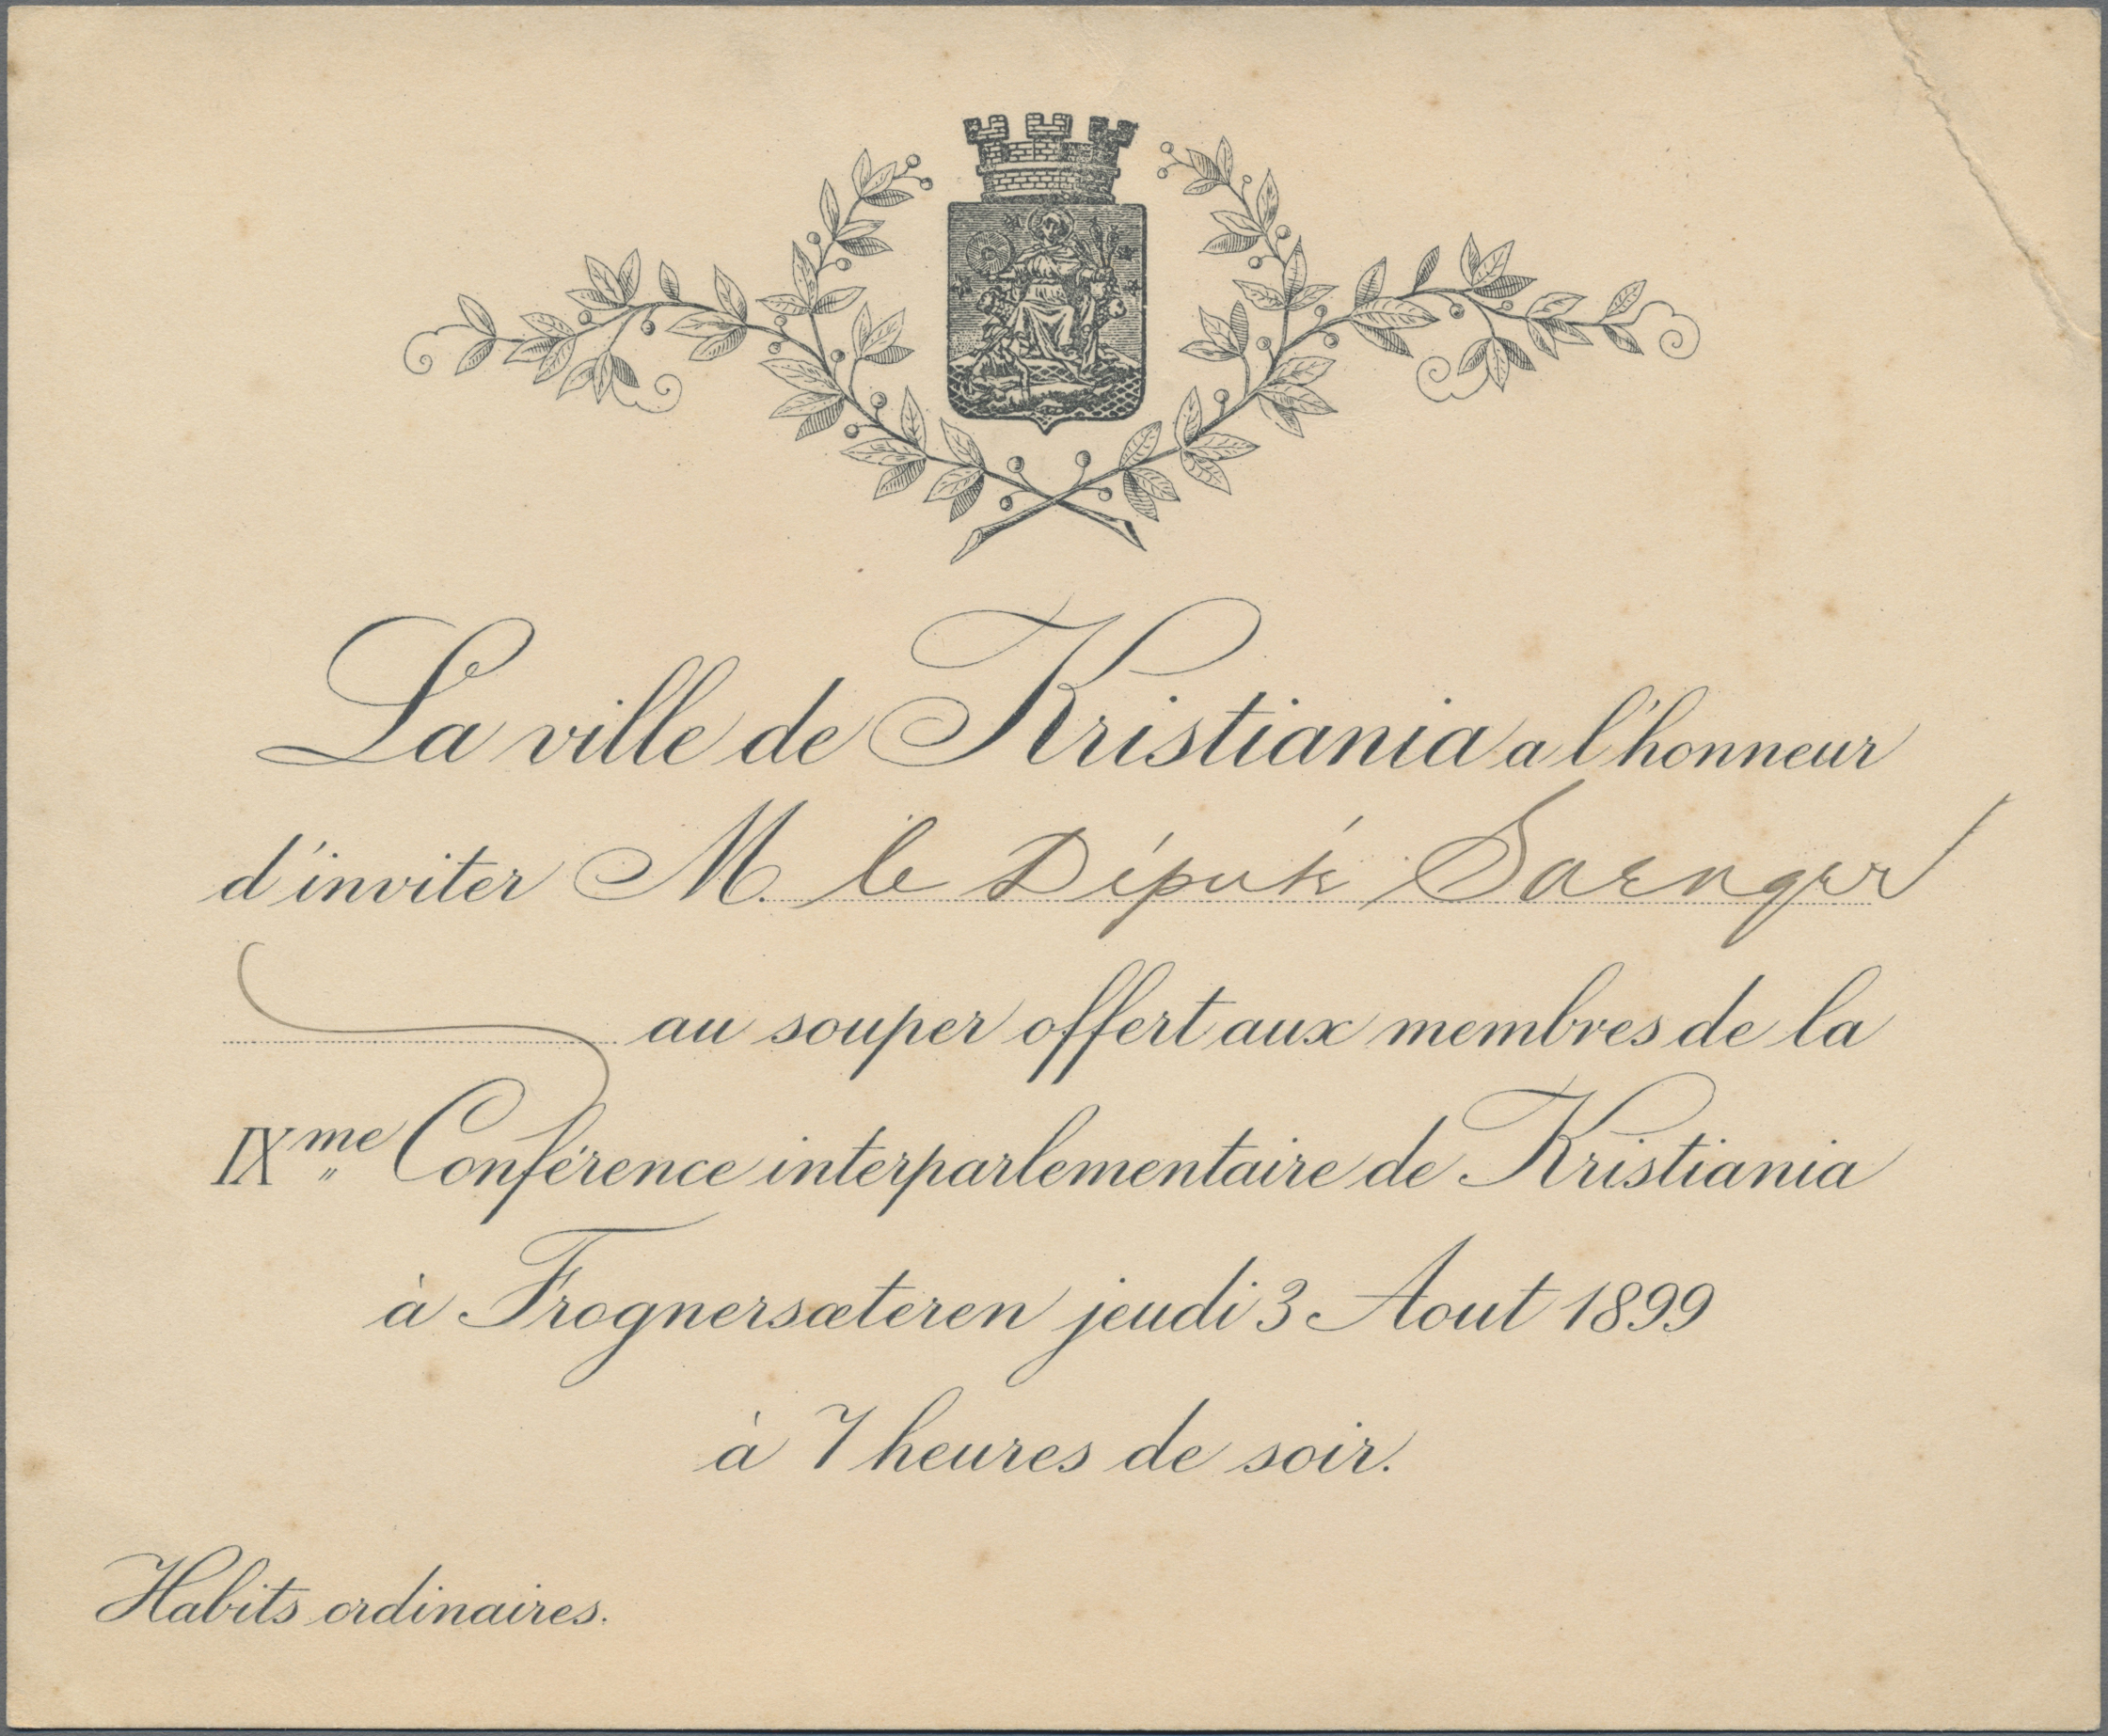 La ville de Kristiania a l'honneur
d'inviter M. le Député Saenger
au souper offert aux membres de la
IXme Conférence interparlementaire de Kristiania
à Frognersæteren jeudi 3 Aout 1899
à 7 heures de soir.
Habits ordinaires.